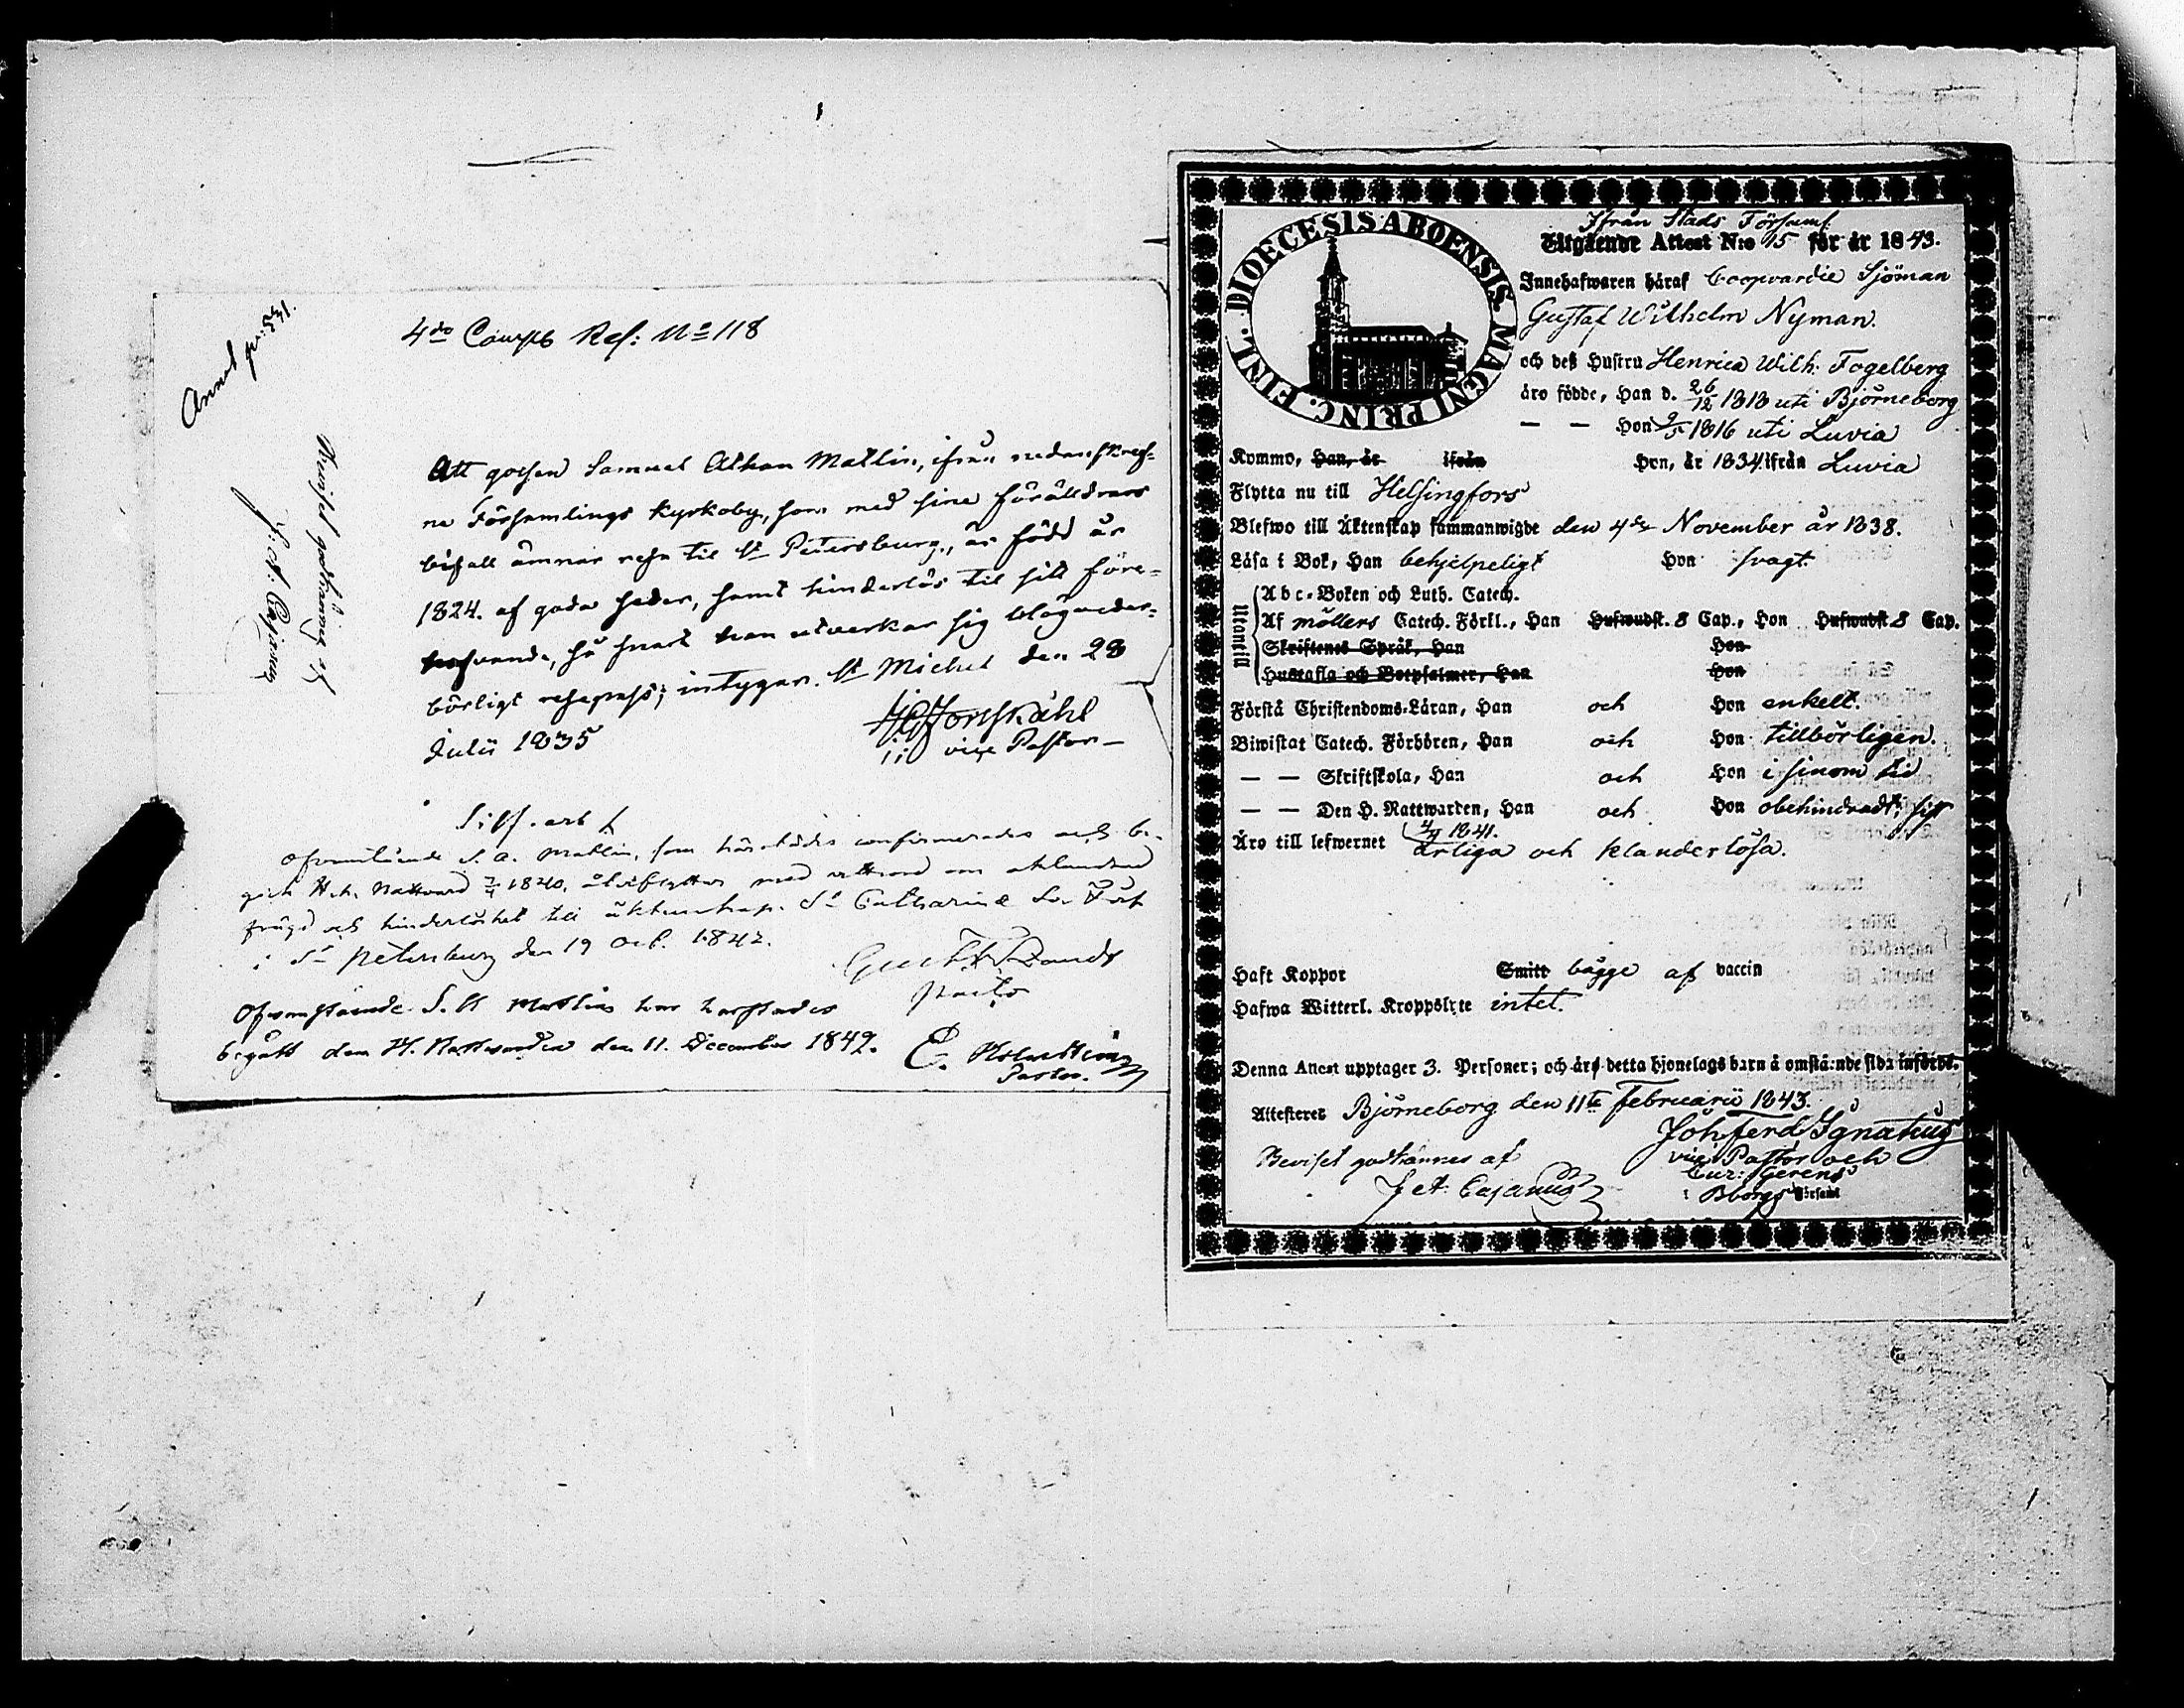 4do Camps Ref: No 118
Att gossen Samuel Athan Mallin, ifrån nedanskref-
ne Församlings Kyrkoby, som med sine föräldrars
bifall ämnar resa til St Petersburg, är född år
1824. af goda seder, samt hinderlös til sitt före-
så snart han utverkar sig
börligt resepass; intygar. St Michel den 28
Julii 1835
vice Pastor
S. A. Mallin, som härstädes confirmerades och be-
gick H. h. Nattvard 1840, med
och hinderlöshet till äktenskap. St Catharina
i St Petersburg den 19 Oct. 1842.
Ofvanstående S. A Mallin har härstädes
begått den H. Nattvarden den 11. December 1842.
Pastor.
Beviset godkännes af
Ifrån Stads Församl
Utgående Attest N:o 15 för år 1843.
DIOECESIS ABOENSIS. MAGNI PRINC. FINL.
Innehafwaren häraf Coopvardie Sjöman
Gustaf Wilhelm Nyman.
och deß Hustru Henrica Wilh: Fogelberg
äro födde, Han d. 26/12 1818 uti Björneborg
— — Hon 1816 uti Luvia
Kommo, Han, är ifrån Hon, är 1834 ifrån Luvia
Flytta nu till Helsingfors
Blefwo till Äktenskap sammanwigde den 4de November år 1838.
Läsa i Bok, Han behjelpeligt Hon svagt.
Utantill
Abc-Boken och Luth. Catech.
Af möllers Catech. Förkl., Han Hufwudst. 8 Cap., Hon Hufwudst 8 Cap.
Skriftenes Språk, Han Hon
Hustafla och Botpsalmer, Han Hon
Förstå Christendoms-Läran, Han och Hon enkelt.
Biwistat Catech. Förhören, Han och Hon tillbörligen.
— — Skriftskola, Han och Hon i sinom tid
— — Den H. Nattwarden, Han och Hon obehindradt; sist
4/4 1841.
Äro till lefwernet ärliga och klanderlösa.
Haft Koppor Smitt bägge af vaccin
Hafwa Witterl. Kroppslyte intet.
Denna Attest upptager 3. Personer; och äro detta hjonelags barn å omstående sida införde.
Attesteret Björneborg den 11te Februarii 1843.
Joh Ferd Ignatius
vice Pastor och
Cur: Gerens
i Bborgs Församl
Beviset godkännes af
Cajanus